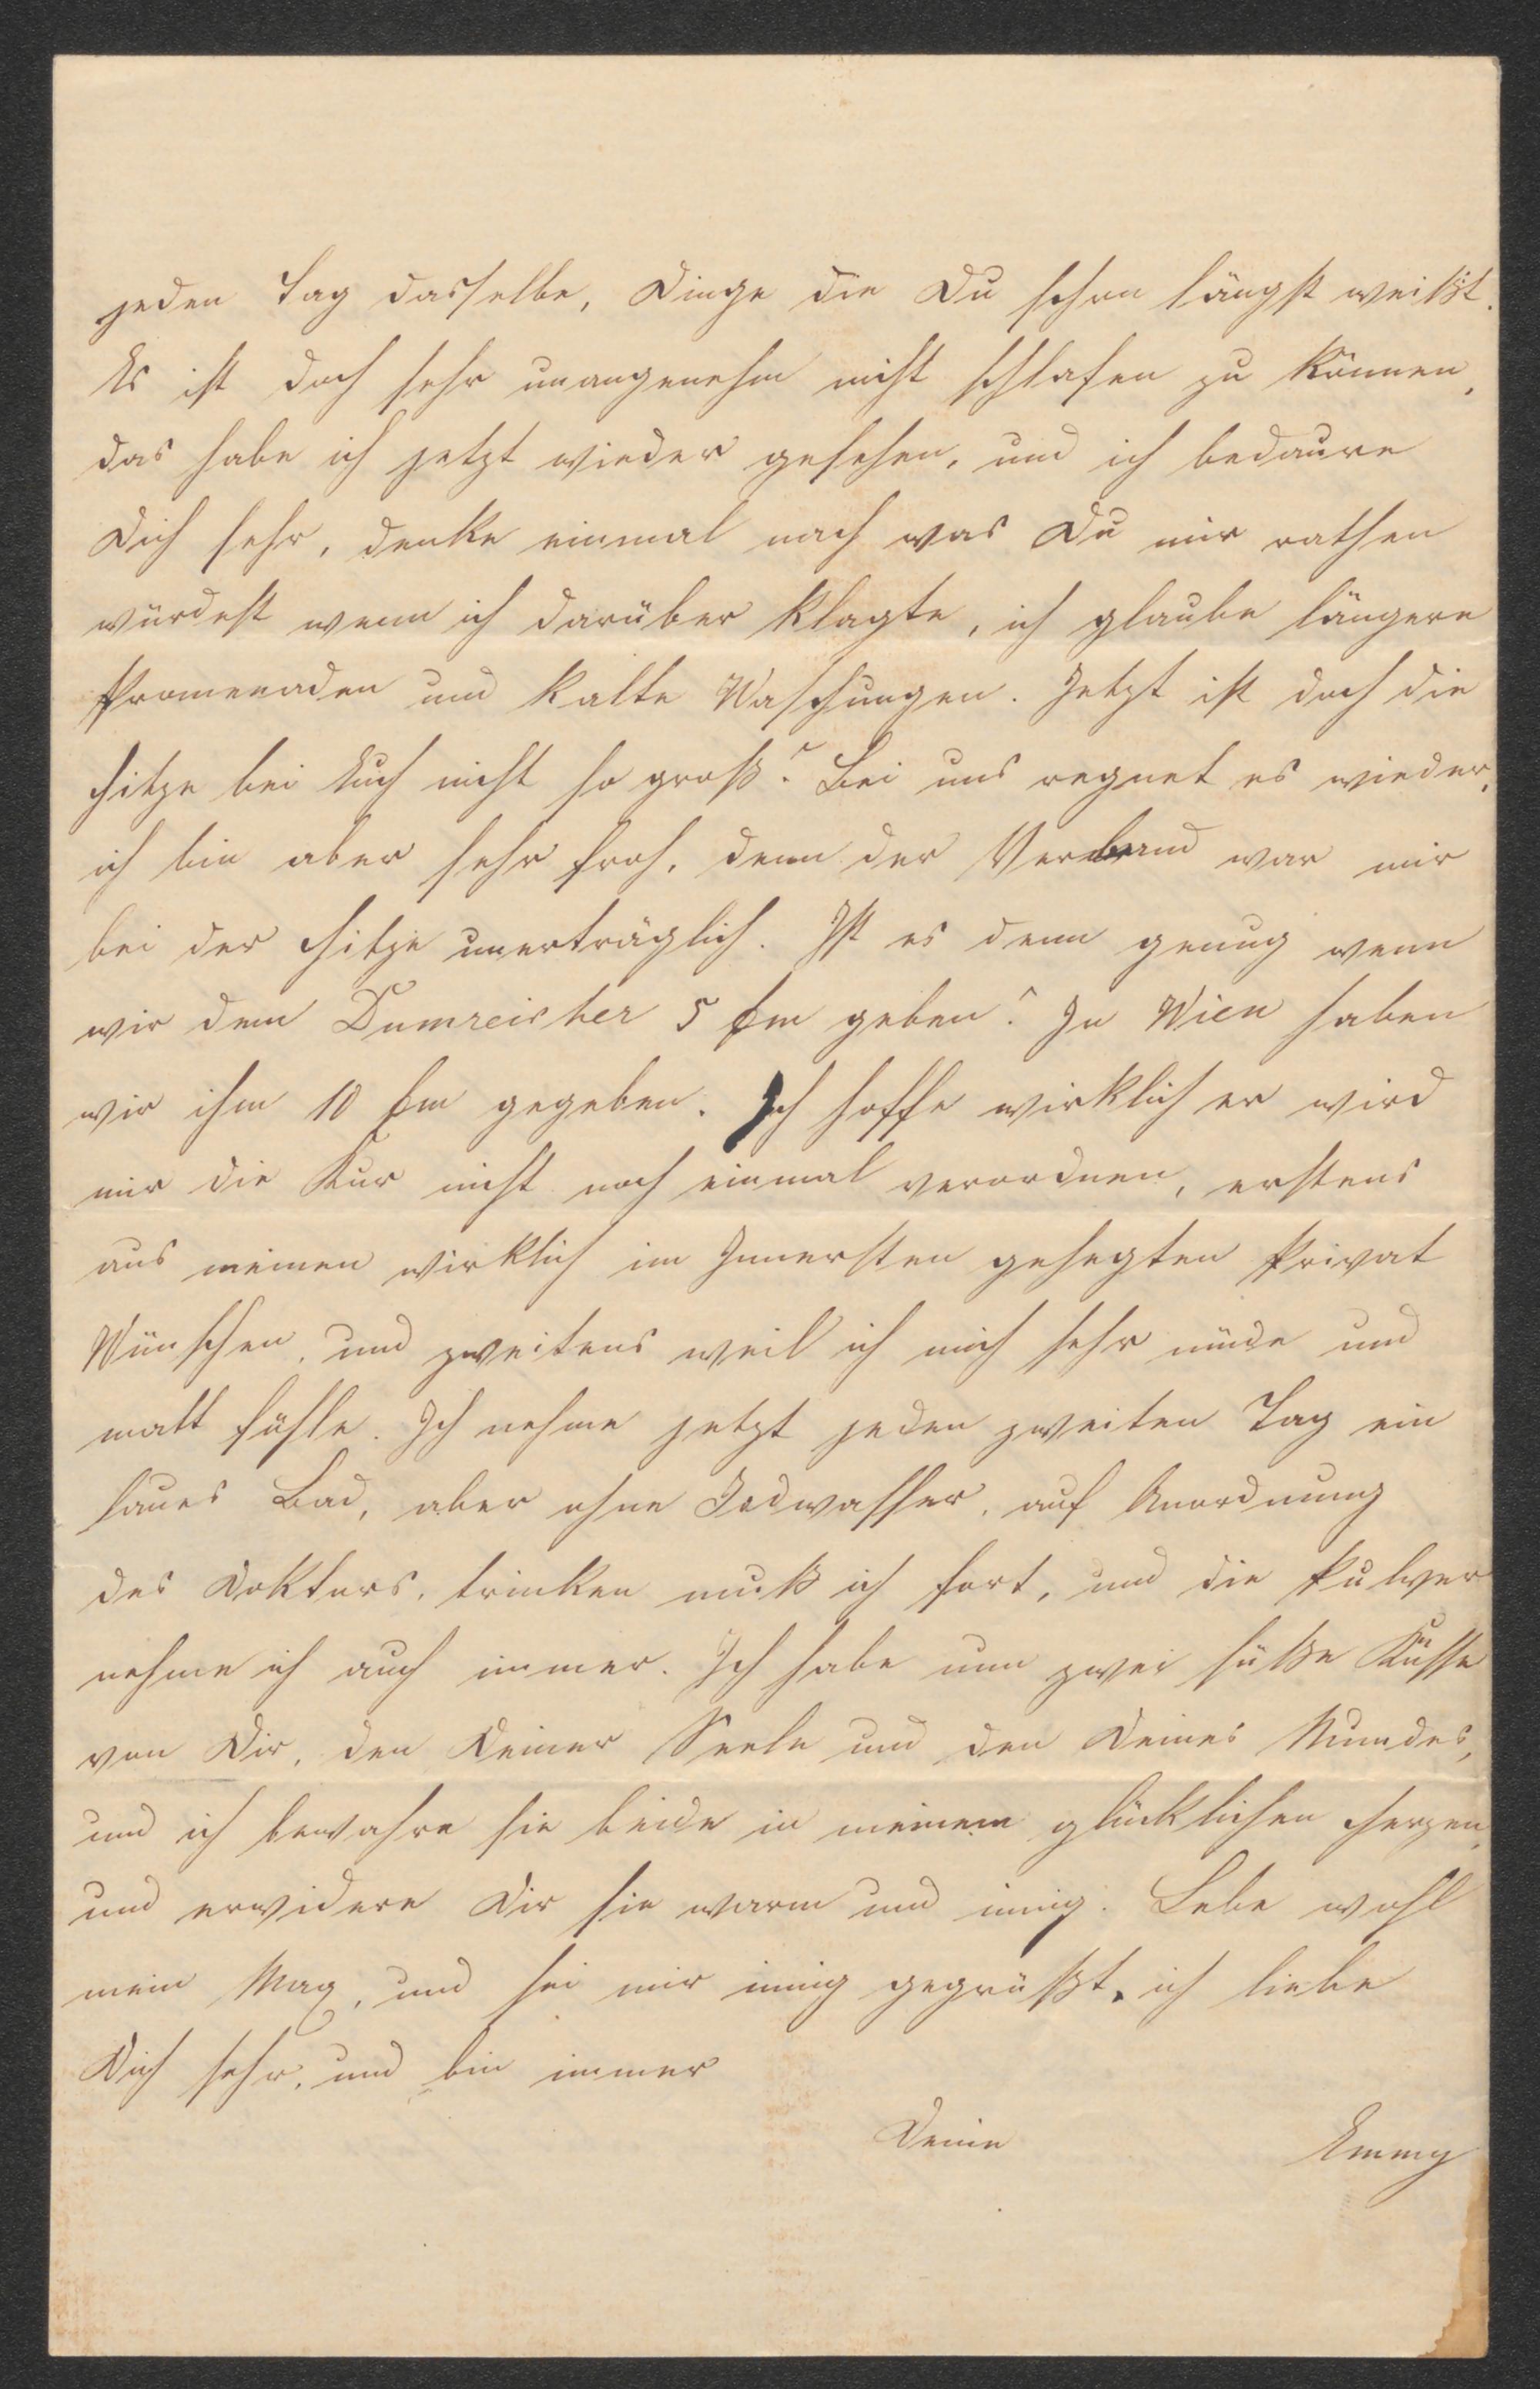 jeden Tag dasselbe, Dinge die Du schon längst weißt.
Es ist doch sehr unangenehm nicht schlafen zu können,
das habe ich jetzt wieder gesehen, und ich bedaure
Dich sehr, denke einmal nach was Du mir rathen
würdest wenn ich darüber klagte, ich glaube längere
Promenaden und kalte Waschungen. Jetzt ist doch die
Hitze bei Euch nicht so groß? Bei uns regnet es wieder,
ich bin aber sehr froh, denn der Verband war mir
bei der Hitze unerträglich. Ist es denn genug wenn
wir dem Dumreicher 5 geben? In Wien haben
wir ihm 10 gegeben. Ich hoffe wirklich er wird
mir die Kur nicht noch einmal verordnen, erstens
aus meinen wirklich im Innersten gehegten Privat
Wünschen, und zweitens weil ich mich sehr müde und
matt fühle. Ich nehme jetzt jeden zweiten Tag ein
laues Bad, aber ohne Jodwasser, auf Anordnung
des Doktors, trinken muß ich fort, und die Pulver
nehme ich auch immer. Ich habe nun zwei süße Küsse
von Dir, den Deiner Seele und den Deines Mundes,
und ich bewahre sie beide in meinem glücklichen Herzen,
und erwidere Dir sie warm und innig. Lebe wohl
mein Max, und sei mir innig gegrüßt, ich liebe
Dich sehr, und bin immer
Deine Emmy